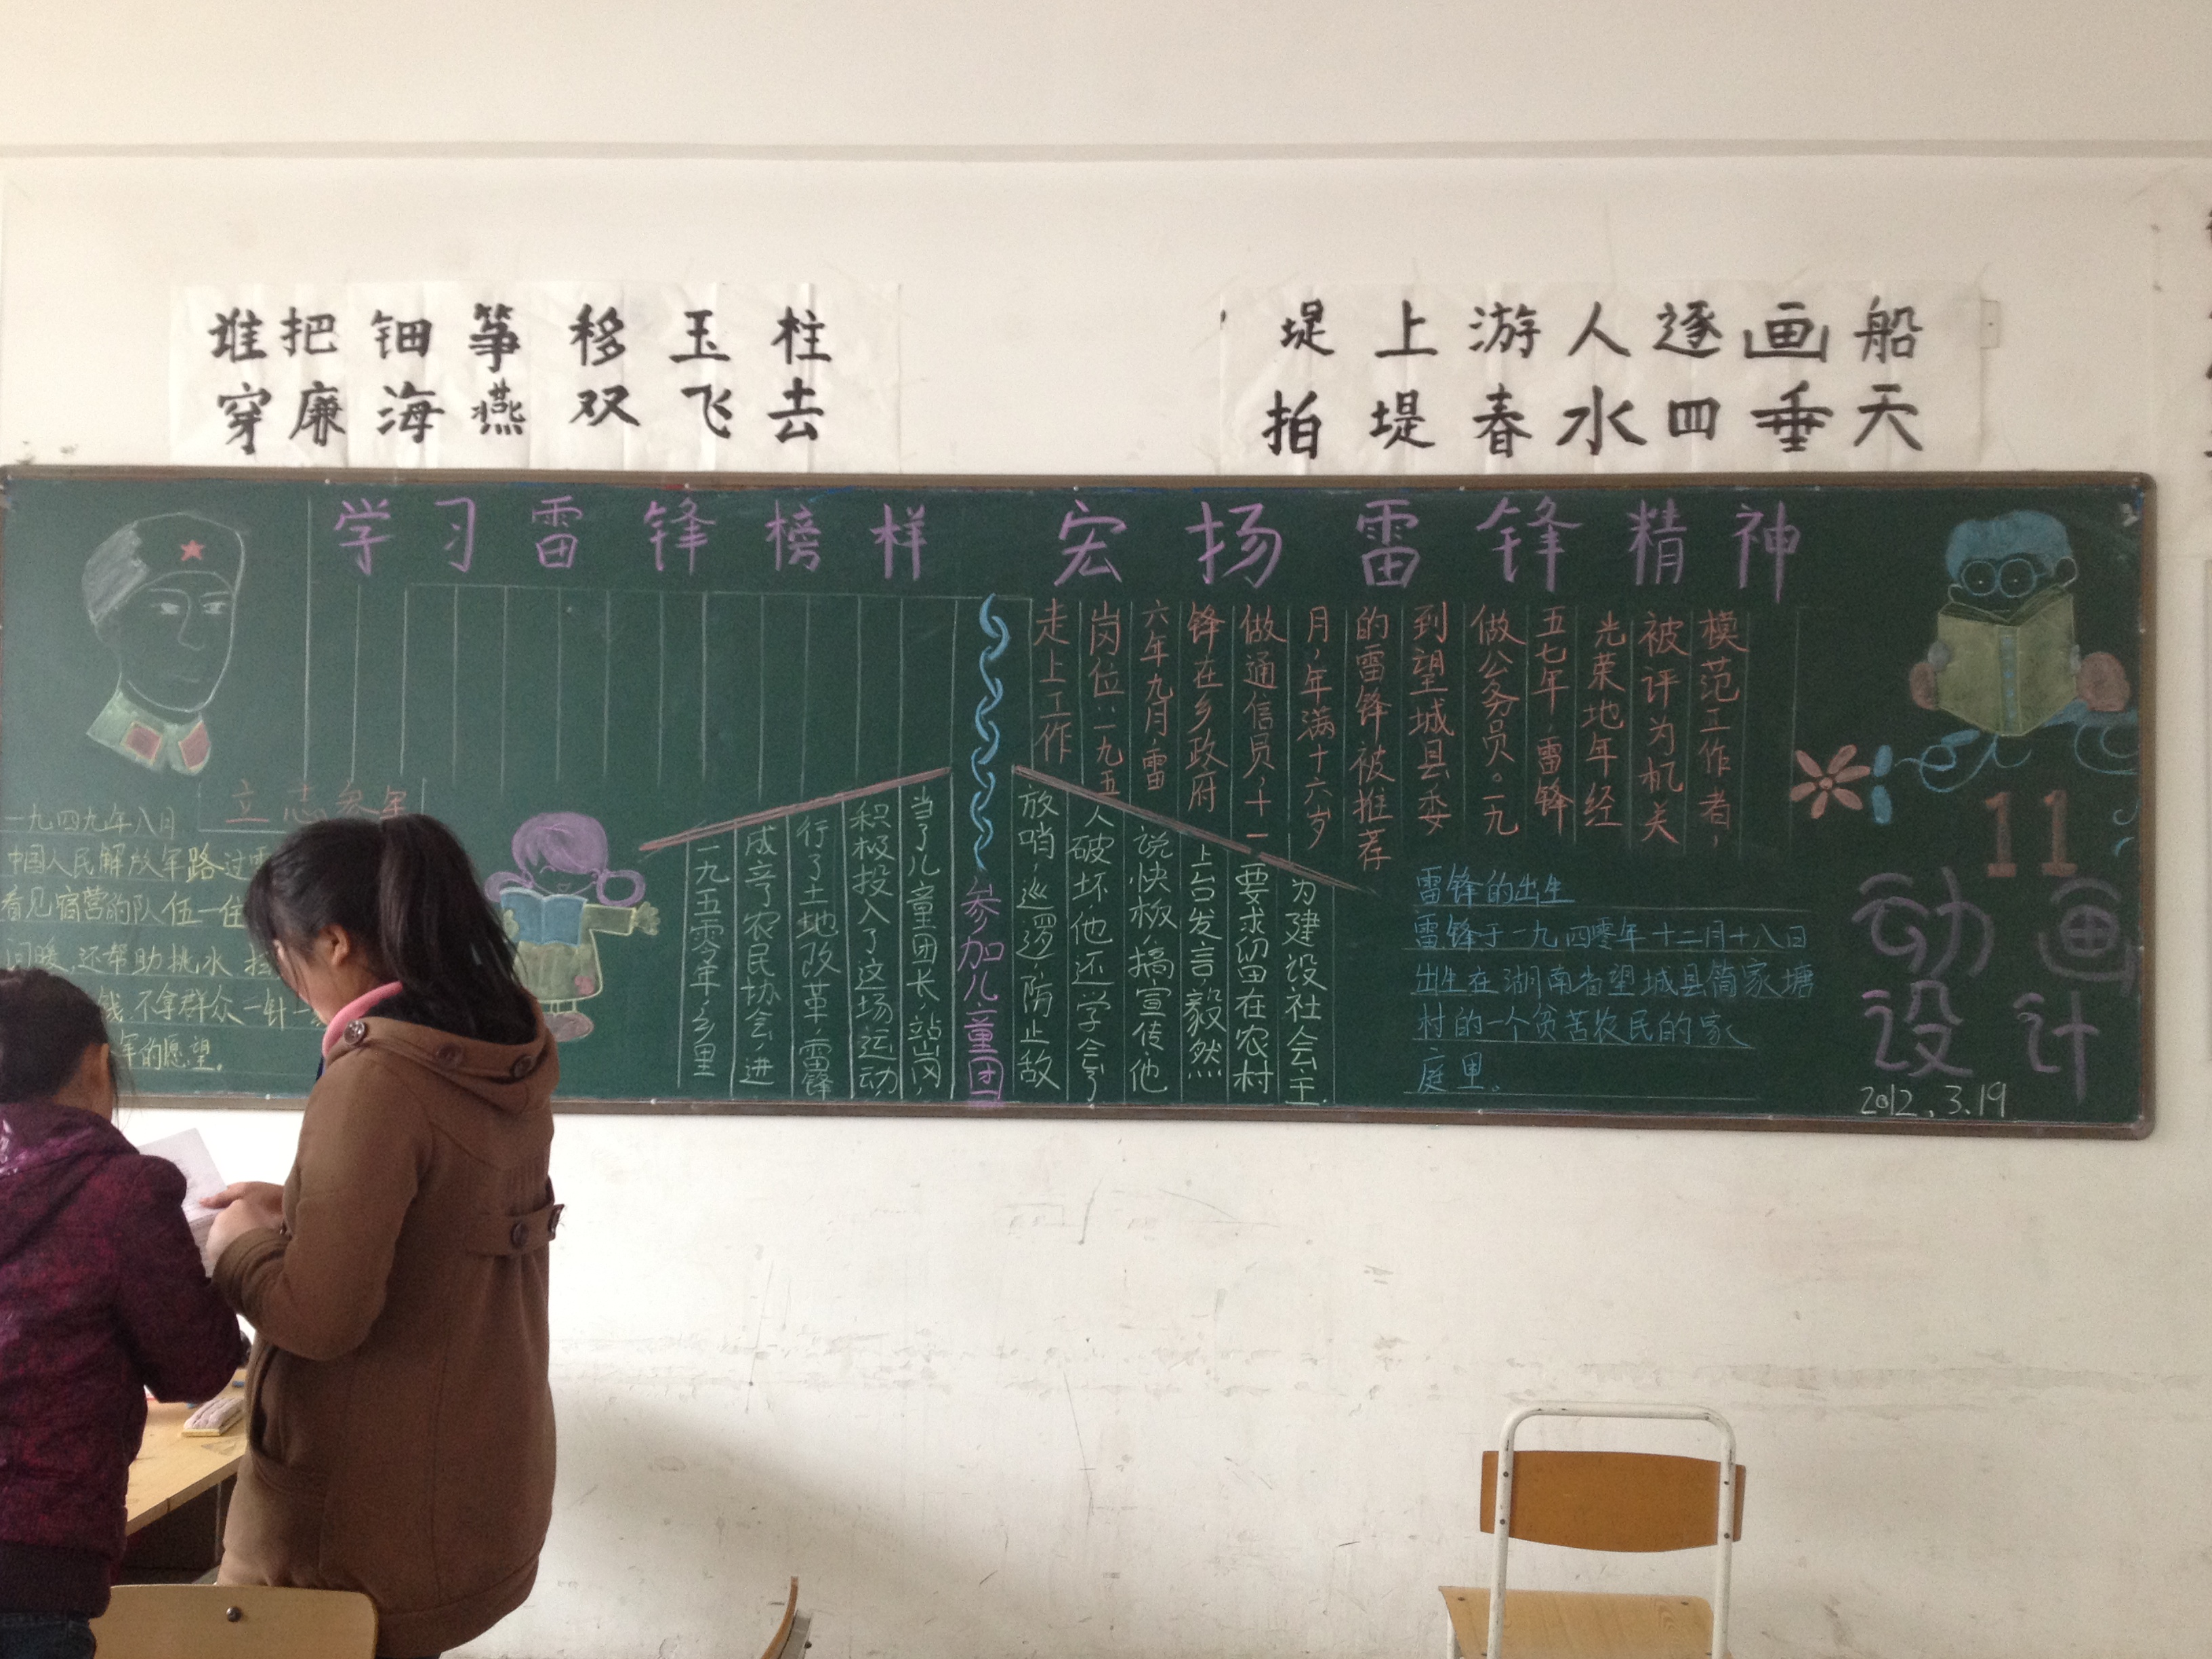 谁把钿筝移玉柱
穿廉海燕双飞去
堤上游人逐画船
拍堤春水四垂天
学习雷锋榜样
宏扬雷锋精神
立志参军
一九四九年八月
中国人民解放军路过
看见宿营的队伍一住
问暖，还帮助挑水
钱，不拿群众一针一
年的愿望。
一九五零年，乡里
成立了农民协会，进
行了土地改革，雷锋
积极投入了这场运动，
当了儿童团长，站岗，
参加儿童团
放哨，巡逻，防止敌
人破坏他还学会了
说快板，搞宣传他
走上工作
岗位：一九五
六年九月雷
锋在乡政府
做通信员，十一
月，年满十六岁
的雷锋被推荐
到望城县委
做公务员。一九
五七年，雷锋
光荣地年经
被评为机关
模范工作者，
上台发言，毅然
要求留在农村
为建设社会主
雷锋的出生
雷锋于一九四零年十二月十八日
出生在湖南省望城县简家塘
村的一个贫苦农民的家
庭里。
11
动画
设计
2012.3.19